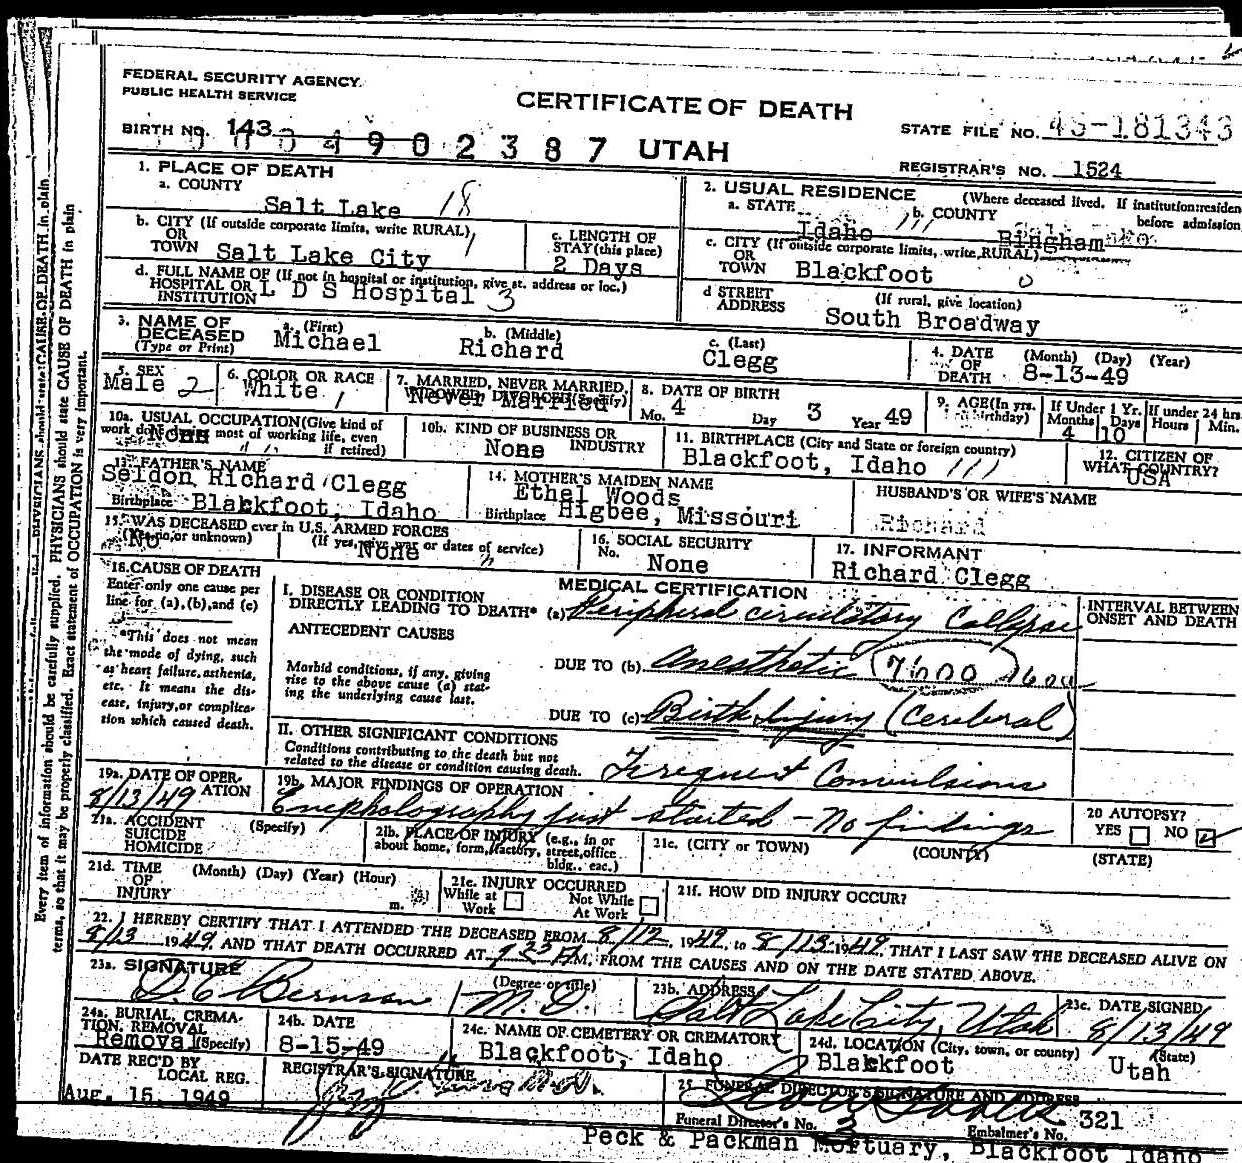 FEDERAL SECURITY AGENCY
PUBLIC HEALTH SERVICE
CERTIFICATE OF DEATH
STATE FILE NO. 45-181343
BIRTH NO. 143
4902387 UTAH
REGISTRAR'S NO. 1524
1. PLACE OF DEATH
a. COUNTY
Salt Lake 18
2. USUAL RESIDENCE (Where deceased lived. If institution:residen
before admission
a. STATE Idaho
b. COUNTY Bingham
b. CITY (If outside corporate limits, write RURAL)
OR
TOWN Salt Lake City
c. LENGTH OF
STAY (this place)
2 Days
c. CITY (If outside corporate limits, write RURAL)
OR
TOWN Blackfoot
d. FULL NAME OF (If not in hospital or institution, give st. address or loc.)
HOSPITAL OR
INSTITUTION L D S Hospital 3
d STREET
ADDRESS
(If rural, give location)
South Broadway
3. NAME OF
DECEASED
(Type or Print)
a. (First)
Michael
b. (Middle)
Richard
c. (Last)
Clegg
4. DATE
OF
DEATH
(Month) (Day) (Year)
8-13-49
5. SEX
Male 2
6. COLOR OR RACE
White 1
7. MARRIED, NEVER MARRIED,
WIDOWED, DIVORCED (Specify)
Never Married
8. DATE OF BIRTH
Mo. 4 Day 3 Year 49
9. AGE (In yrs.
birthday)
If Under 1 Yr.
Months Days
4 10
If under 24 hrs
Hours Min.
10a. USUAL OCCUPATION (Give kind of
work done during most of working life, even
if retired)
None
10b. KIND OF BUSINESS OR
INDUSTRY
None
11. BIRTHPLACE (City and State or foreign country)
Blackfoot, Idaho 111
12. CITIZEN OF
WHAT COUNTRY?
USA
13. FATHER'S NAME
Seldon Richard Clegg
Birthplace Blackfoot, Idaho
14. MOTHER'S MAIDEN NAME
Ethel Woods
Birthplace Higbee, Missouri
HUSBAND'S OR WIFE'S NAME
Richard
15. WAS DECEASED ever in U.S. ARMED FORCES
(Yes, no, or unknown)
No
(If yes, give war or dates of service)
None
16. SOCIAL SECURITY
No.
None
17. INFORMANT
Richard Clegg
18. CAUSE OF DEATH
Enter only one cause per
line for (a), (b), and (c)
*This does not mean
the mode of dying, such
as heart failure, asthenia,
etc. It means the dis-
ease, injury, or complica-
tion which caused death.
MEDICAL CERTIFICATION
I. DISEASE OR CONDITION
DIRECTLY LEADING TO DEATH* (a) Peripheral circulatory Collapse
INTERVAL BETWEEN
ONSET AND DEATH
ANTECEDENT CAUSES
Morbid conditions, if any, giving
rise to the above cause (a) stat-
ing the underlying cause last.
DUE TO (b) Anesthetic 7600
DUE TO (c) Birth Injury (Cerebral)
II. OTHER SIGNIFICANT CONDITIONS
Conditions contributing to the death but not
related to the disease or condition causing death.
Frequent Convulsions
19a. DATE OF OPER-
ATION
8/13/49
19b. MAJOR FINDINGS OF OPERATION
Encephalography just started - No findings
20 AUTOPSY?
YES NO
21a. ACCIDENT
SUICIDE
HOMICIDE
(Specify)
21b. PLACE OF INJURY (e.g., in or
about home, form, factory, street, office
bldg., eac.)
21c. (CITY or TOWN)
(COUNTY)
(STATE)
21d. TIME
OF
INJURY
(Month) (Day) (Year) (Hour)
m.
21e. INJURY OCCURRED
While at
Work
Not While
At Work
21f. HOW DID INJURY OCCUR?
22. I HEREBY CERTIFY THAT I ATTENDED THE DECEASED FROM 8/12, 1949, to 8/13 1949, THAT I LAST SAW THE DECEASED ALIVE ON
8/13 1949, AND THAT DEATH OCCURRED AT M, FROM THE CAUSES AND ON THE DATE STATED ABOVE.
23a. SIGNATURE
(Degree or title)
M.D.
23b. ADDRESS
Salt Lake City, Utah
23c. DATE SIGNED
8/13/49
24a. BURIAL, CREMA-
TION, REMOVAL
(Specify)
Removal
24b. DATE
8-15-49
24c. NAME OF CEMETERY OR CREMATORY
Blackfoot, Idaho
24d. LOCATION (City, town, or county)
Blackfoot
(State)
Utah
DATE REC'D BY
LOCAL REG.
Aug. 15, 1949
REGISTRAR'S SIGNATURE
25. FUNERAL DIRECTOR'S SIGNATURE AND ADDRESS
Funeral Director's No.
Embalmer's No. 321
Peck & Packman Mortuary, Blackfoot Idaho
Every item of information should be carefully supplied. PHYSICIANS should state CAUSE OF DEATH in plain
terms, so that it may be properly classified. Exact statement of OCCUPATION is very important.